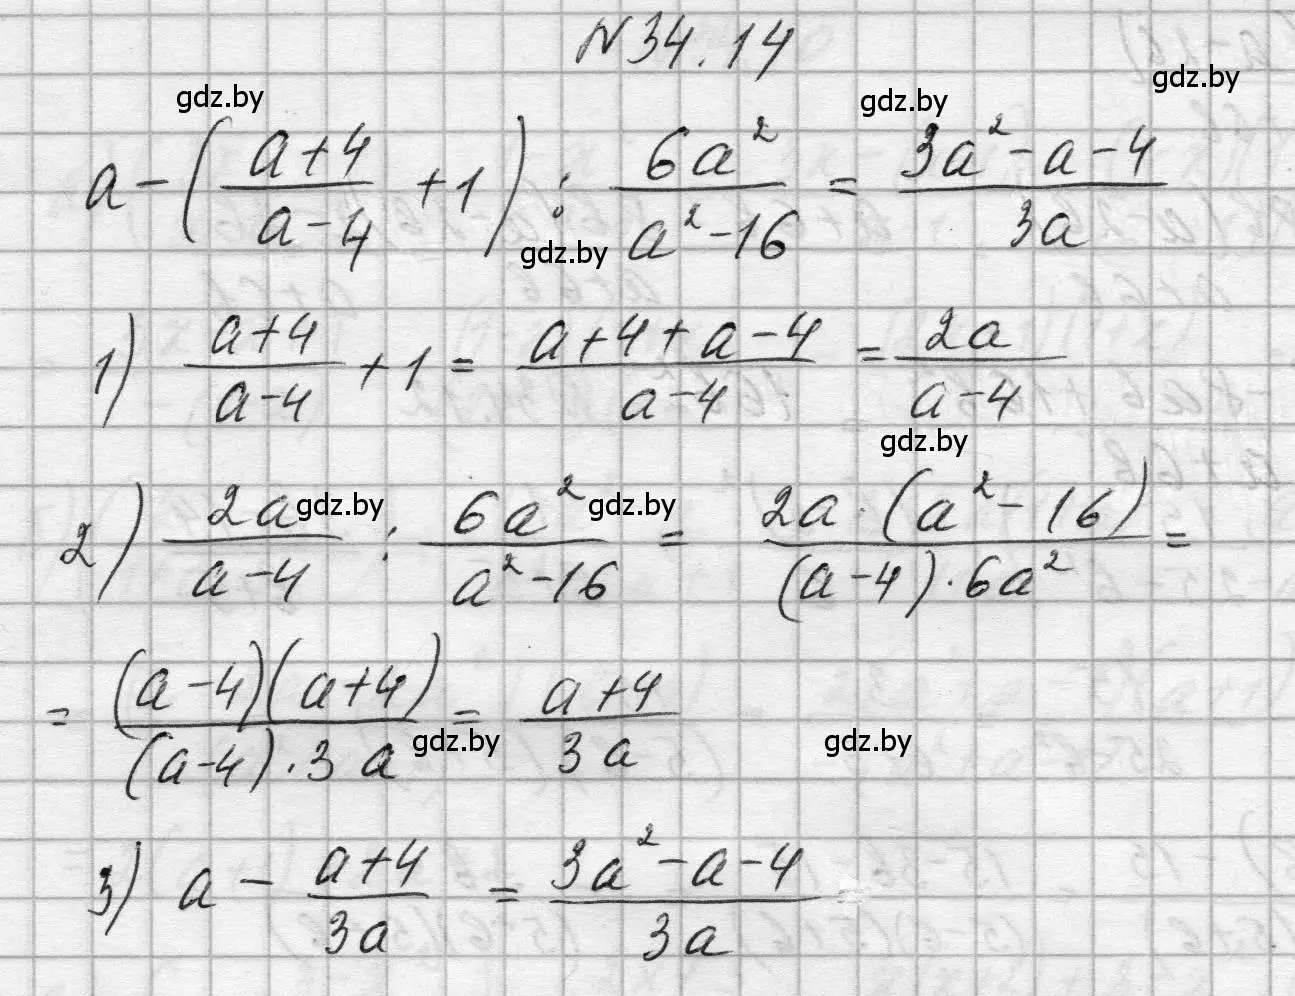 N 34.14
gdz.by gdz.by gdz.by
a - ((a+4)/(a-4) + 1) : 6a²/(a²-16) = (3a²-a-4)/3a
gdz.by
1) (a+4)/(a-4) + 1 = (a+4+a-4)/(a-4) = 2a/(a-4)
gdz.by
2) 2a/(a-4) : 6a²/(a²-16) = 2a·(a²-16)/((a-4)·6a²) =
gdz.by gdz.by
= (a-4)(a+4)/((a-4)·3a) = (a+4)/3a
gdz.by gdz.by
3) a - (a+4)/3a = (3a²-a-4)/3a